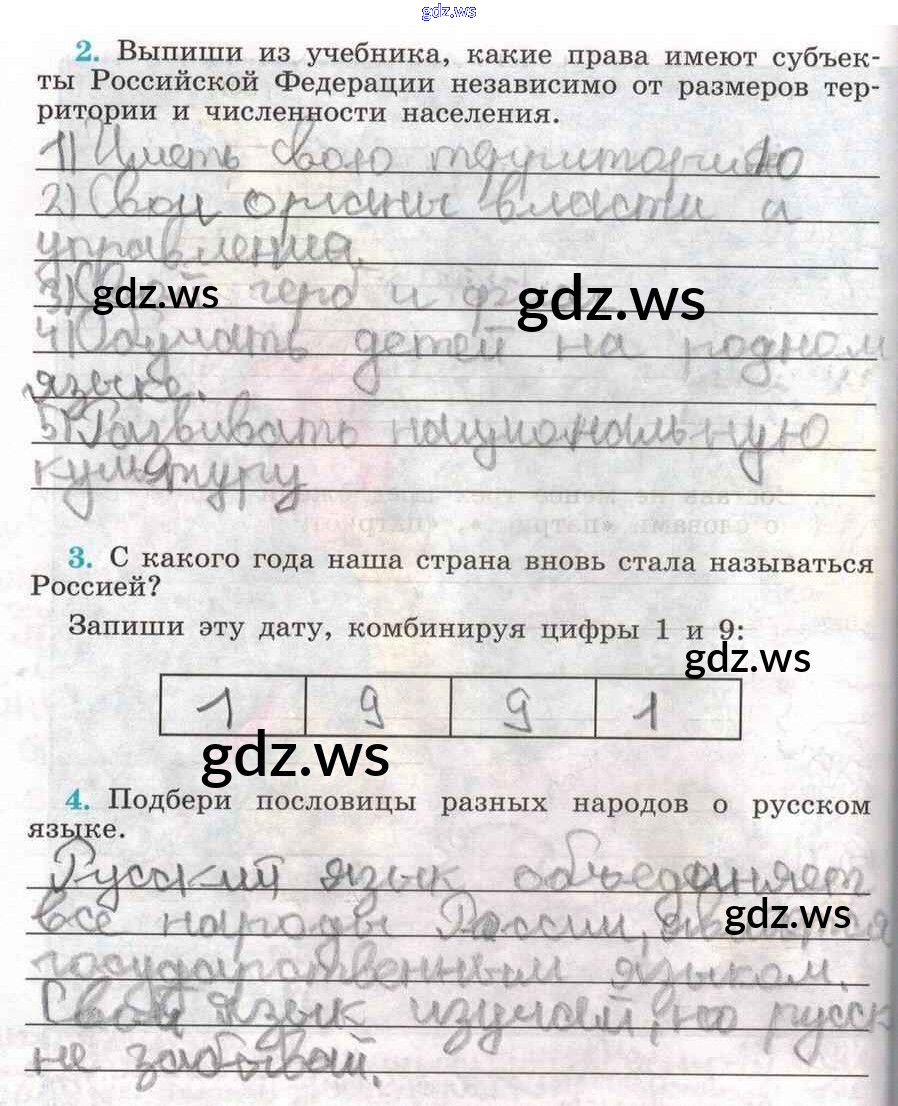 gdz.ws
2. Выпиши из учебника, какие права имеют субъек-
ты Российской Федерации независимо от размеров тер-
ритории и численности населения.
1) Иметь свою территорию
2) Свои органы власти и
управления.
3) Свой герб и
gdz.ws gdz.ws
4) Обучать детей на родном
языке.
5) Развивать национальную
культуру
3. С какого года наша страна вновь стала называться
Россией?
Запиши эту дату, комбинируя цифры 1 и 9:
gdz.ws
1 9 9 1
gdz.ws
4. Подбери пословицы разных народов о русском
языке.
Русский язык объединяет
все народы России,
gdz.ws
государственным языком.
Свой язык изучай, но русск
не забывай.